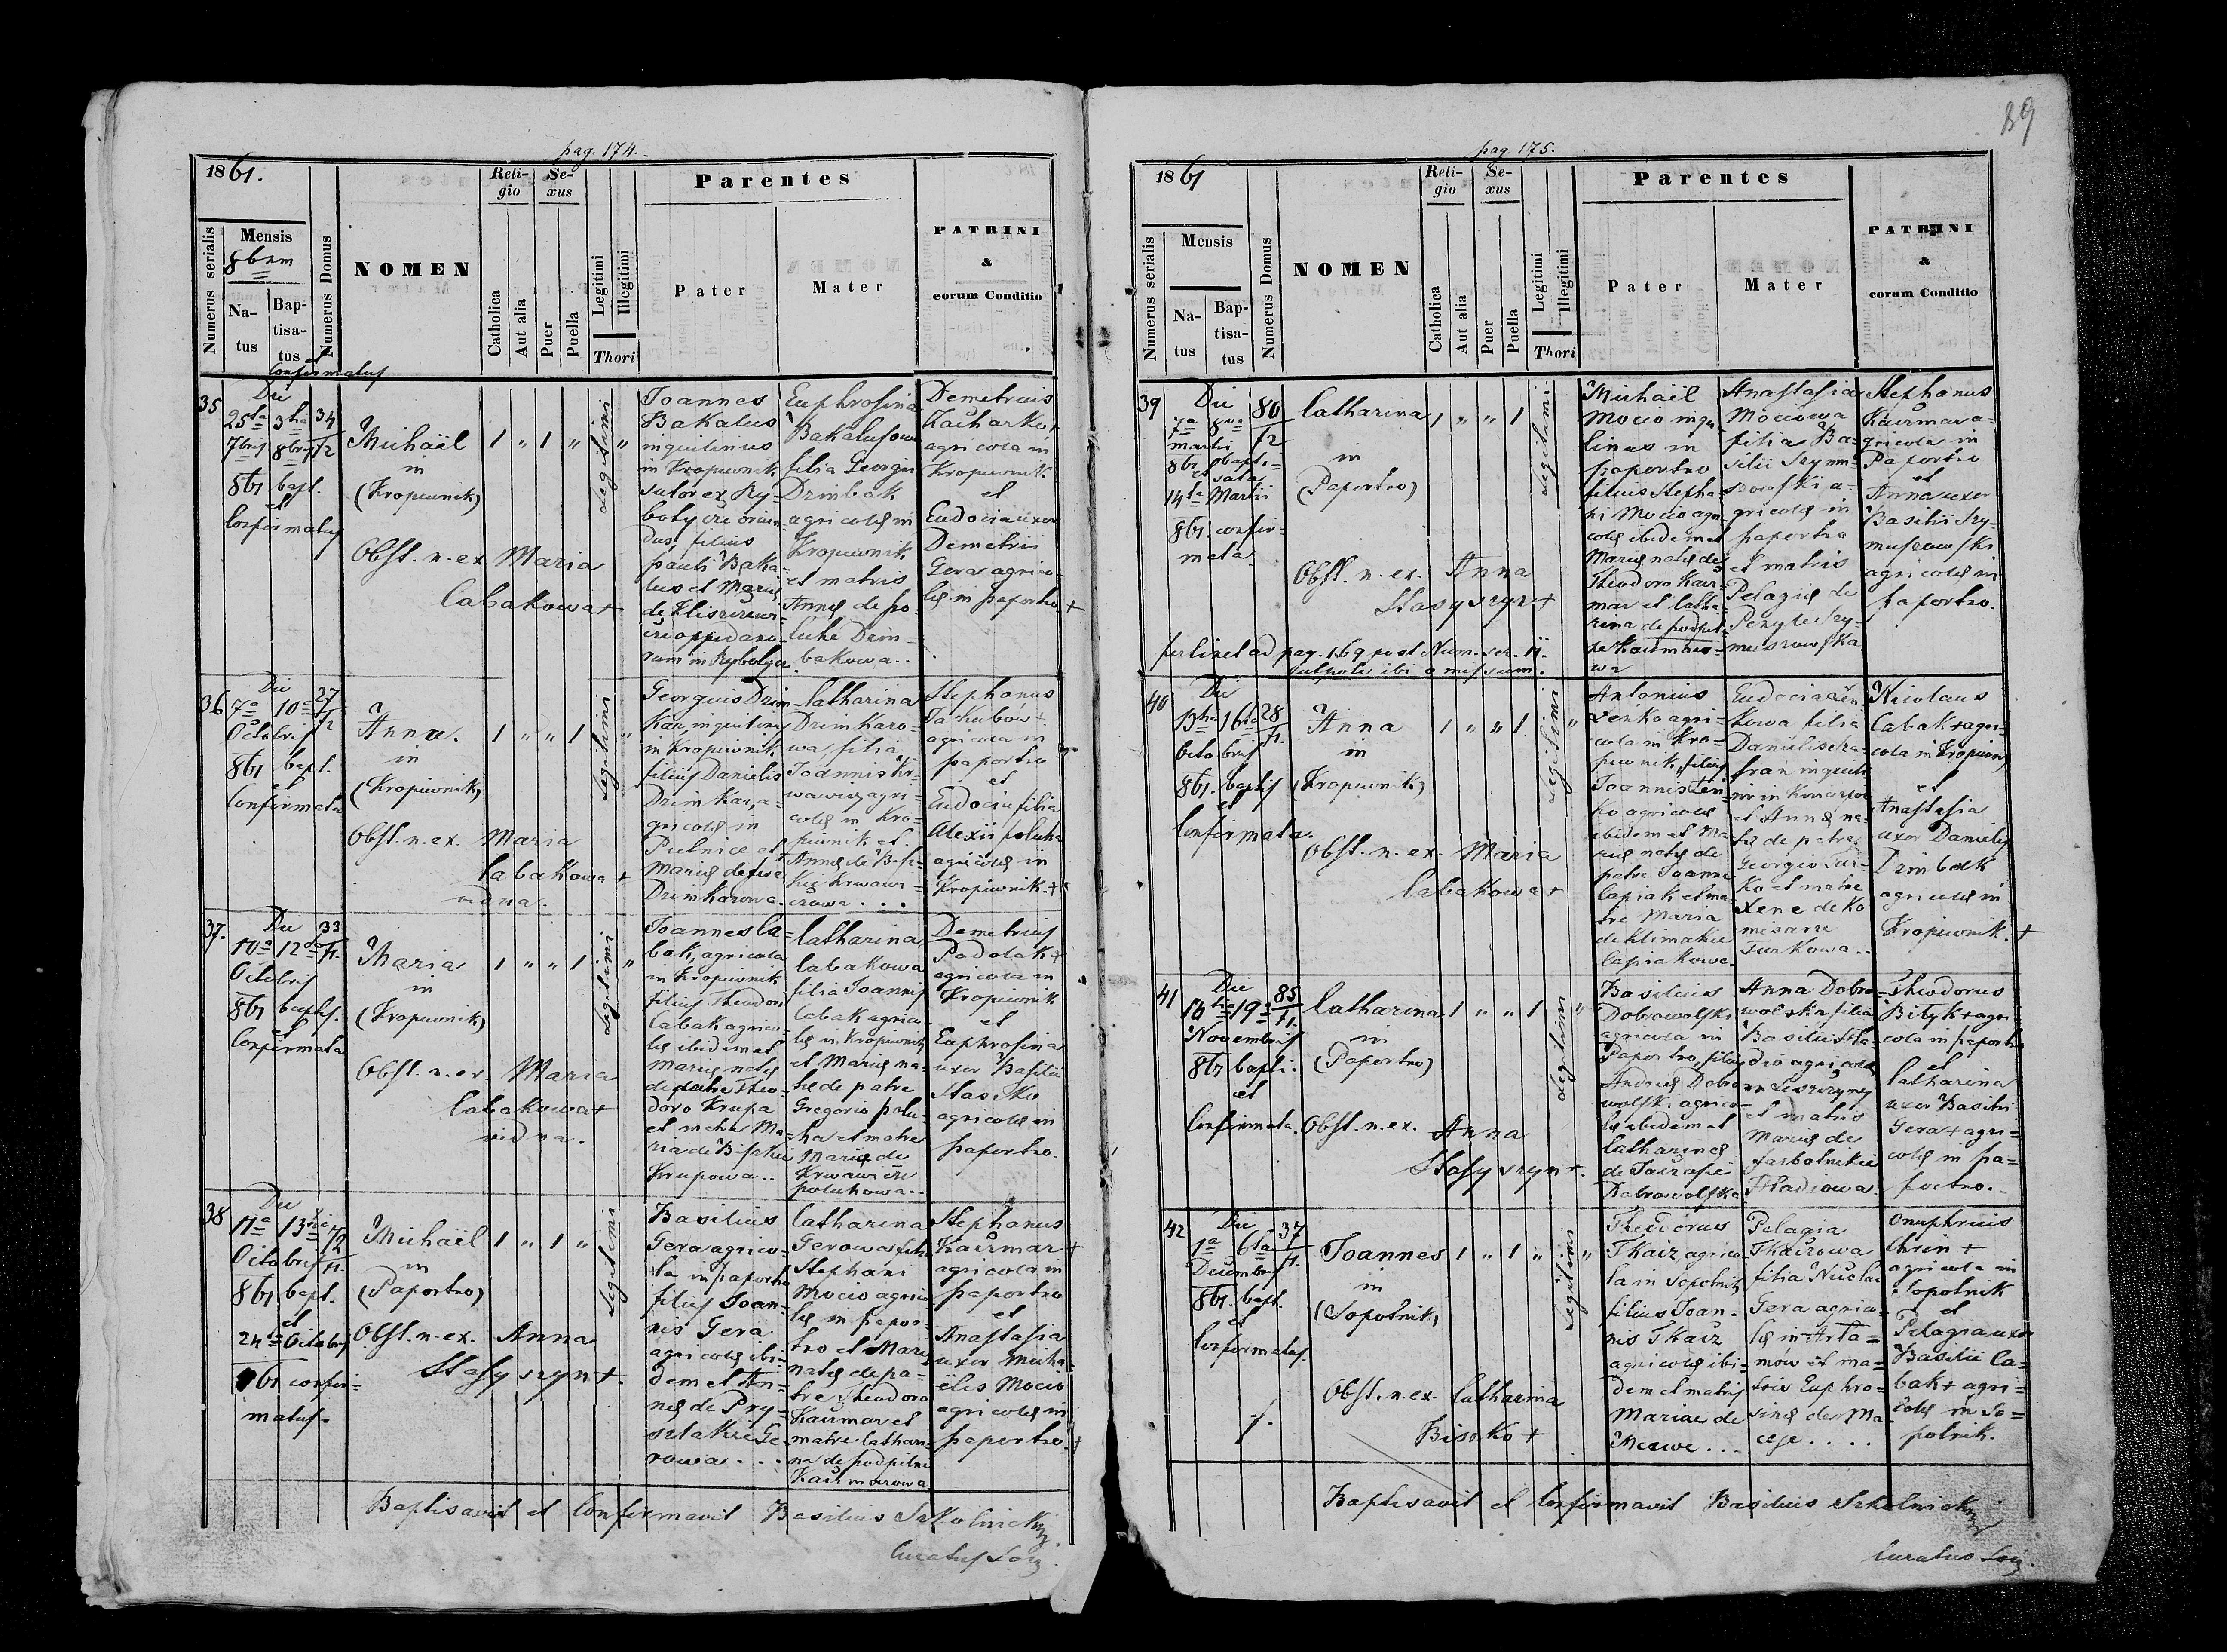 89
pag. 174.
1861.
Numerus serialis
Mensis
8brm
Na-
tus
Bap-
tisa-
tus
et
Confirmatus
Numerus Domus
NOMEN
Reli-
gio
Catholica
Aut alia
Se-
xus
Puer
Puella
Legitimi
Illegitimi
Thori
Parentes
Pater
Mater
PATRINI
&
eorum Conditio
35
Die
25ta 3tia 34
7bris 8bris
861 bapt.
et
Confirmatus
Michaël
in
(Kropiwnik)
Obst. n. ex. Maria
Cabakowa +
1 " 1 "
Legitimi
"
Joannes
Bakalus
inquilinus
in Kropiwnik
sutor ex Ry-
botycze oriun-
dus filius
Pauli Baka-
lus et Mariæ
rum in Rybotycze
Euphrosina
Bakalusowa
filia Georgii
Drimbak
agricolæ in
Kropiwnik
et matris
Annæ de Po-
luhe Drim-
bakowa..
Demetrius
Zacharko +
agricola in
Kropiwnik
et
Eudocia uxor
Demetrii
Gera agrico-
læ in Paportno +
36
Die
7a 10a 27
Octobris
861 bapt.
et
Confirmata
Anna.
in
(Kropiwnik)
Obst. n. ex. Maria
Cabakowa +
vidna.
1 " " 1
Legitimi
"
Georgius Drim-
kar, inquilinus
in Kropiwnik
filius Danielis
Drimkar, a-
gricolæ in
Drimkarowa.
Catharina
Drimkaro-
wa, filia
Joannis Kr-
wawicz agri-
colæ in Kro-
piwnik et
Stephanus
Jakubów +
agricola in
Paportno
et
Eudocia filia
Alexii Poluha
agricolæ in
Kropiwnik. +
37.
Die 33
10a 12a
Octobris
861 baptis.
et
Confirmata
Maria
in
(Kropiwnik)
Obst. n. ex. Maria
Cabakowa +
vidna.
1 " " 1
Legitimi
"
Joannes Ca-
bak, agricola
in Kropiwnik
filius Theodori
Cabak agrico-
læ ibidem et
Mariæ natæ
de patre Theo-
doro Krupa
et matre Ma-
Krupowa..
Catharina
Cabakowa
filia Joannis
Cabak agrico-
læ in Kropiwnik
et Mariæ na-
tæ de patre
Gregorio Polu-
ha et matre
Maria de
Krwawicze
Poluhowa..
Demetrius
Podolak +
agricola in
Kropiwnik
et
Euphrosina
uxor Basilii
Stasiko
agricolæ in
Paportno.
38
Die
11a 13tia
Octobris
861 bapt.
et
24ta Octobris
861 confir-
matus.
Michaël
in
(Paportno)
Obst. n. ex. Anna
Stasyszyn +
1 " 1 "
Legitimi
Basilius
Gera agrico-
la in Paportno
filius Joan-
nis Gera
agricolæ ibi-
dem et An-
næ de Pry-
rowa...
Catharina
Gerowa filia
Stephani
Mocio agrico-
læ in Papor-
tno et Mariæ
natæ de pa-
tre Theodoro
Kaczmar et
matre Cathari-
na de Podpilne
Kaczmarowa
Stephanus
Kaczmar +
agricola in
Paportno
et
Anastasia
uxor Micha-
ëlis Mocio
agricolæ in
Paportno. +
Baptisavit et Confirmavit Basilius Szkolnicky
Curatus Loci.
pag. 175.
1861
Numerus serialis
Mensis
Na-
tus
Bap-
tisa-
tus
Numerus Domus
NOMEN
Reli-
gio
Catholica
Aut alia
Se-
xus
Puer
Puella
Legitimi
Illegitimi
Thori
Parentes
Pater
Mater
PATRINI
&
eorum Conditio
39
Die 80
7a 8va
Martii
861 bapti-
et sata
14ta Martii
861. confir-
mata.
Catharina
in
(Paportno)
Obst. n. ex. Anna
Stasyszyn +
1 " " 1
Legitimi
Michaël
Mocio inqui-
linus in
Paportno
filius Stepha-
ni Mocio agri-
colæ ibidem et
Mariæ natæ de
Theodoro Kacz-
mar et Catha-
rina de Podpil-
Anastasia
Mociowa
filia Ba-
silii Szym-
gricolæ in
Paportno
et matris
Pelagiæ de
Stephanus
Kaczmar a-
gricola in
Paportno
et
Anna uxor
Basilii Szy-
agricolæ in
Paportno.
pertinet ad pag. 169 post Num. ser. 11.
ibi omissum.
40
Die
13tia 16ta 28
Octobris
861. baptis
et
Confirmata.
Anna
in
(Kropiwnik)
Obst. n. ex. Maria
Cabakowa +
1 " " 1
Legitimi
"
Antonius
cola in Kro-
piwnik, filius
Joannis
ko agricolæ
ibidem et Ma-
riæ natæ de
patre Joanne
Capiak et ma-
tre Maria
de Klimakie
Capiakowa.
Eudocia
kowa filia
et Annæ na-
tæ de patre
Georgio Tur-
ko et matre
Xene de Ko
Turkowa..
Nicolaus
Cabak + agri-
cola in Kropiwnik
et
Anastasia
uxor Danielis
Drimbak
agricolæ in
Kropiwnik. +
41
Die 85
19a
Novembris
861 bapti.
et
Confirmata.
Catharina
in
(Paportno)
Obst. n. ex. Anna
Stasyszyn +.
1 " " 1
Legitimi
"
Basilius
Dobrowolski
agricola in
Paportno, filius
Andreæ Dobro-
wolski agrico-
læ ibidem et
Catharinæ
Dobrowolska
Anna Dobro-
wolska filia
Basilii Hła-
dio agricolæ
in Leszczyny
et matris
Mariæ de
Hładiowa.
Theodorus
Bityk + agri-
cola in Paportno
et
Catharina
uxor Basilii
Gera + agri-
colæ in Pa-
portno.
42
Die 37
1a 6ta
Decembris
861. bapt.
et
Confirmatus.
Joannes
in
(Sopotnik)
Obst. n. ex. Catharina
Bisko +
1 " 1 "
Legitimi
"
Theodorus
Tkacz agrico-
la in Sopotnik
filius Joan-
nis Tkacz
agricolæ ibi-
dem et matris
Mariae de
Pelagia
Tkaczowa
filia Nicolai
Gera agrico-
læ in Arła-
mów et ma-
tris Euphro-
sinæ de Ma-
Onuphrius
Chrin +
agricola in
Sopotnik
et
Pelagia uxor
Basilii Ca-
bak + agri-
colæ in So-
potnik.
Baptisavit et Confirmavit Basilius Szkolnicky
Curatus Loci.